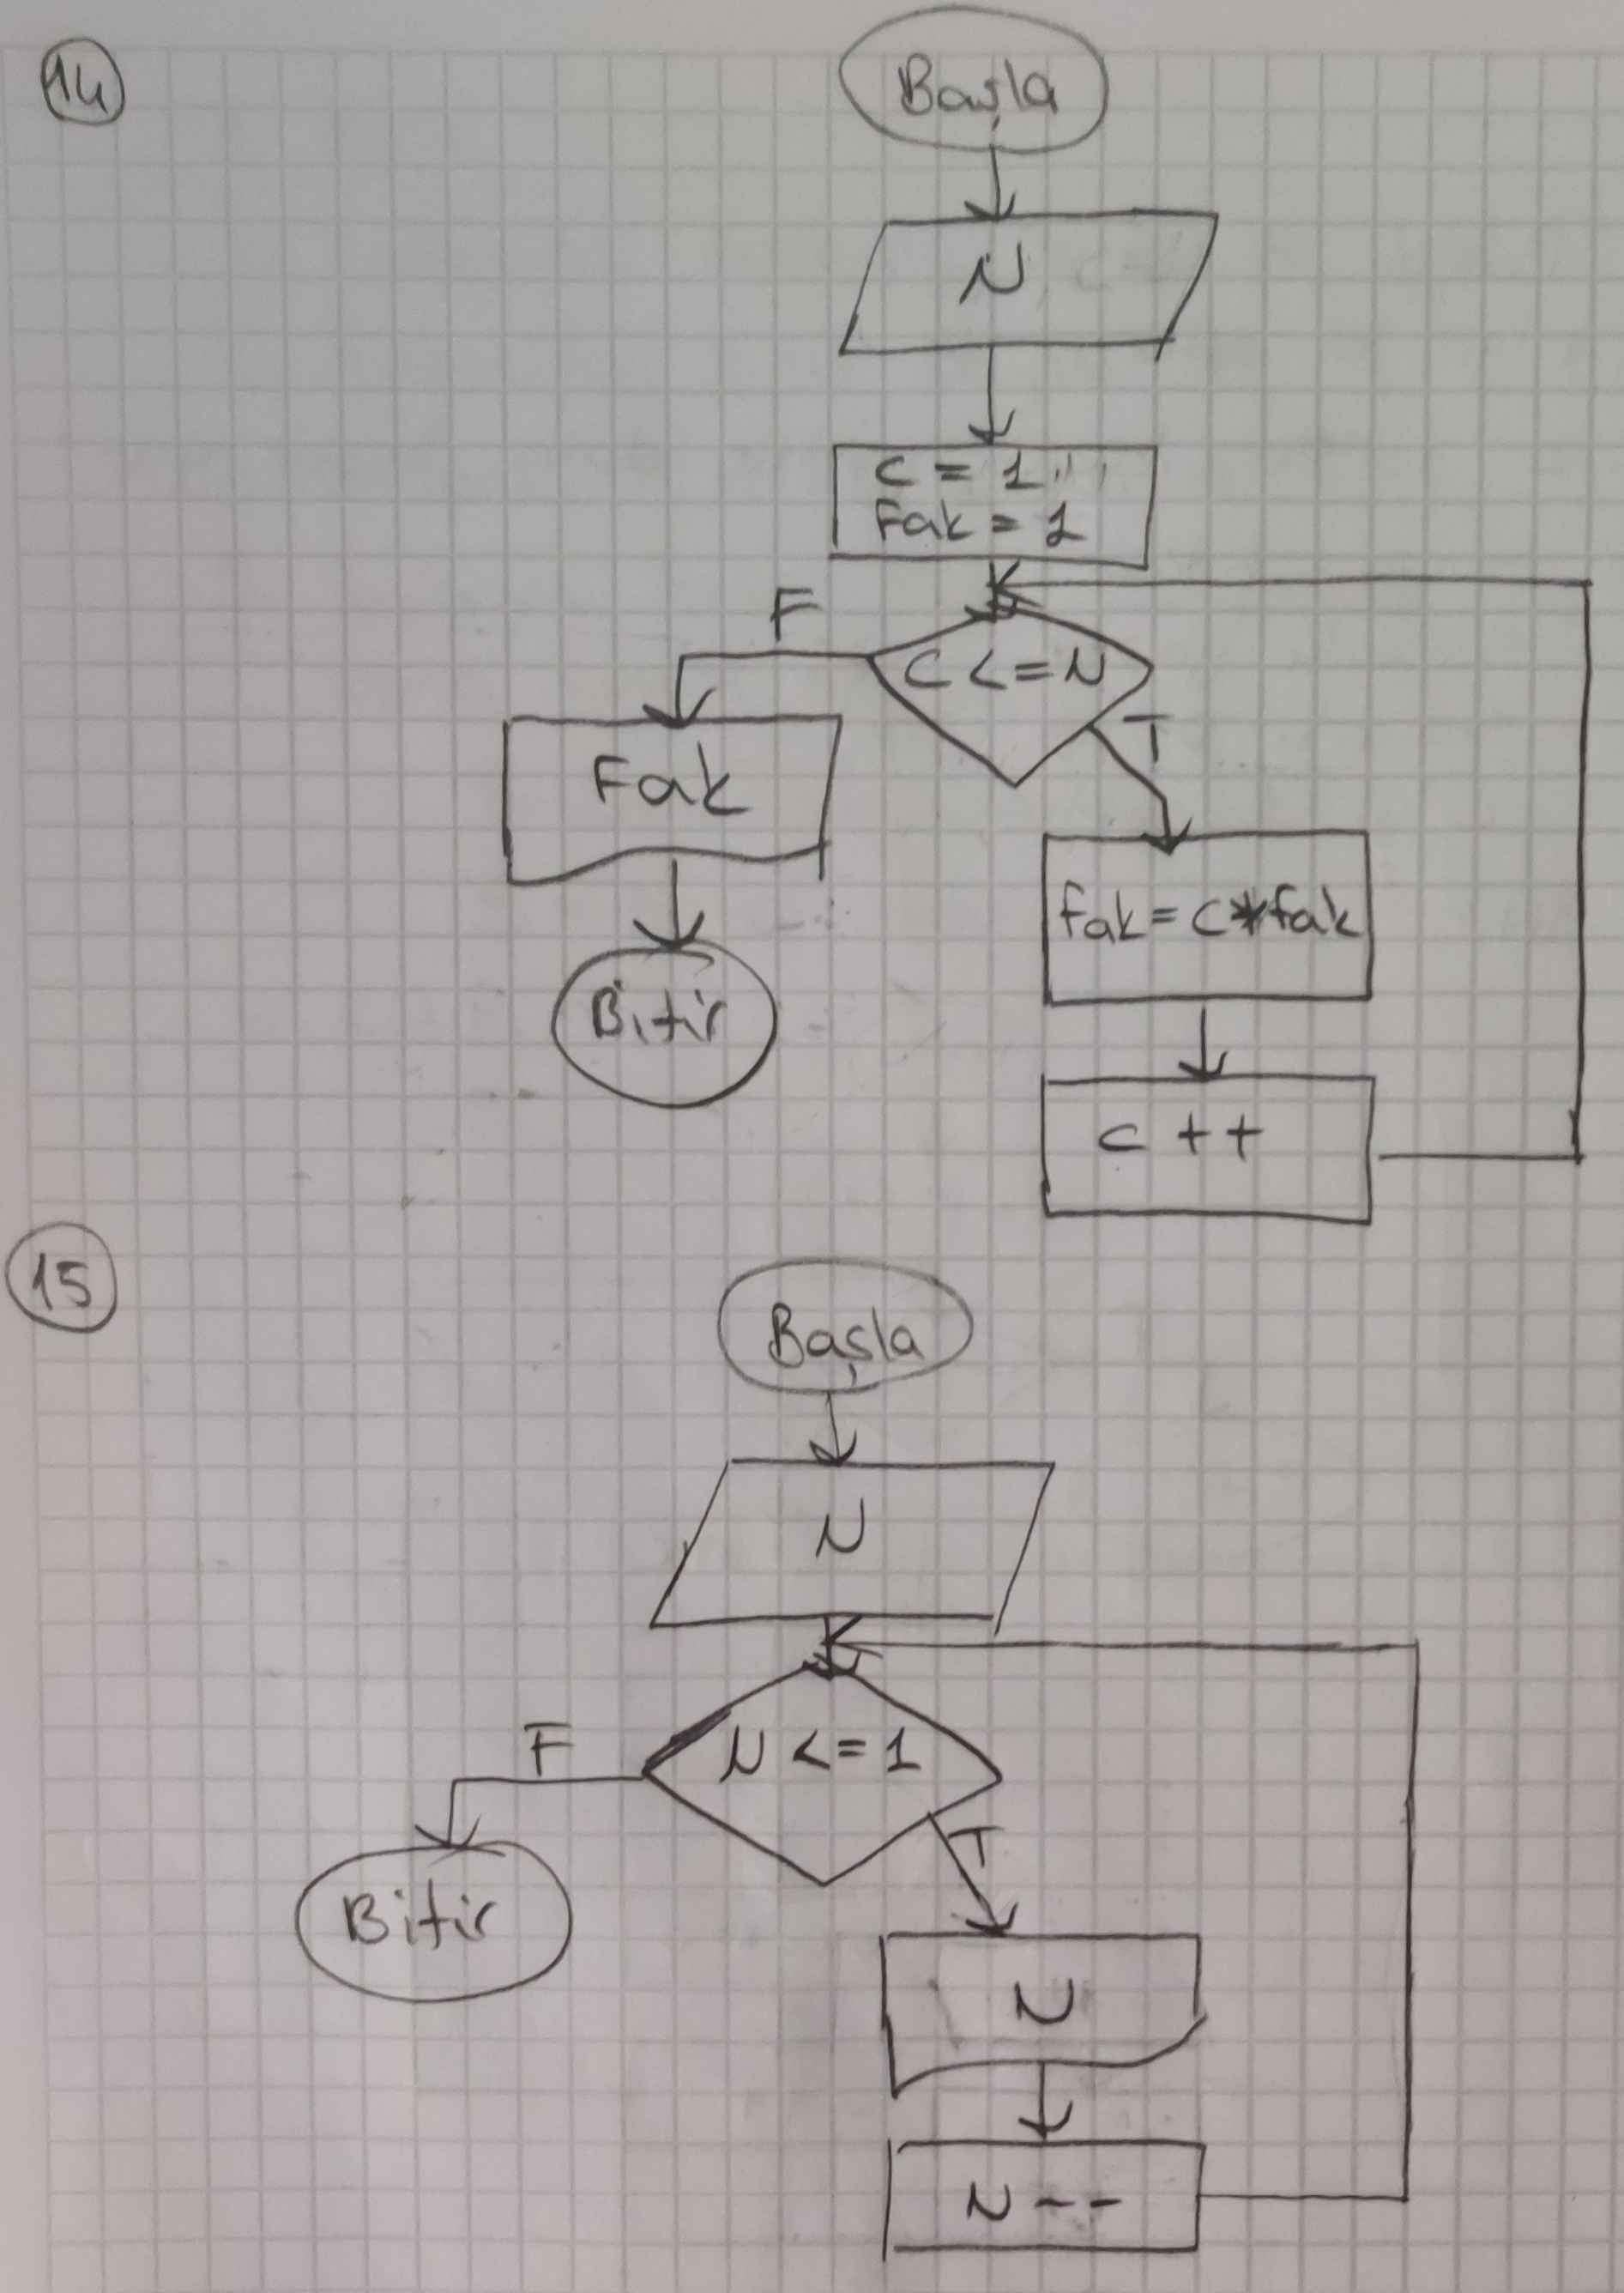 14
Başla
N
C = 1
Fak = 1
F
C <= N
T
Fak
fak = c*fak
Bitir
c ++
15
Başla
N
F
N <= 1
T
Bitir
N
N --